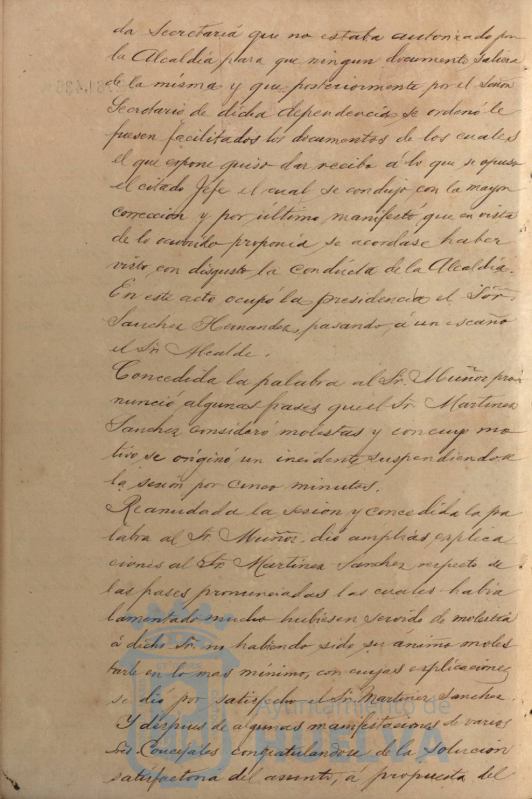 da Secretaría que no estaba autorizado por
la Alcaldía para que ningun documento saliera
de la misma y que posteriormente por el Señor
Secretario de dicha dependencia se ordenó le
fuesen facilitados los documentos de los cuales
el que espone quiso dar recibo á lo que se opuso
el citado Jefe el cual se condujo con la mayor
correccion y por último manifestó, que en vista
de lo ocurrido proponia se acordase haber
visto con disgusto la conducta de la Alcaldía.
En este acto ocupó la presidencia el Sór.
Sanchez Hernandez, pasando, á un escaño
el Sr. Alcalde.
Concedida la palabra al Sr. Muñoz pro-
nunció algunas frases que el Sr. Martinez
Sanchez consideró molestas y con cuyo mo
tivo se originó un incidente suspendiendose
la sesión por cinco minutos.
Reanudada la sesion y concedida la pa
labra al Sr. Muñoz, dio amplias esplica
ciones al Sr. Martinez Sanchez respecto de
las frases pronunciadas las cuales habia
lamentado mucho hubiesen servido de molestia
á dicho Sr. no habiendo sido su ánimo moles
tarle en lo mas mínimo, con cuyas esplicaciones
se dió por satisfecho el Sr. Martinez Sanchez.
Y despues de algunas manifestaciones de varios
Sres. Concejales congratulandose de la solucion
satisfactoria del asunto, á propuesta del
Ayuntamiento de
HUELVA